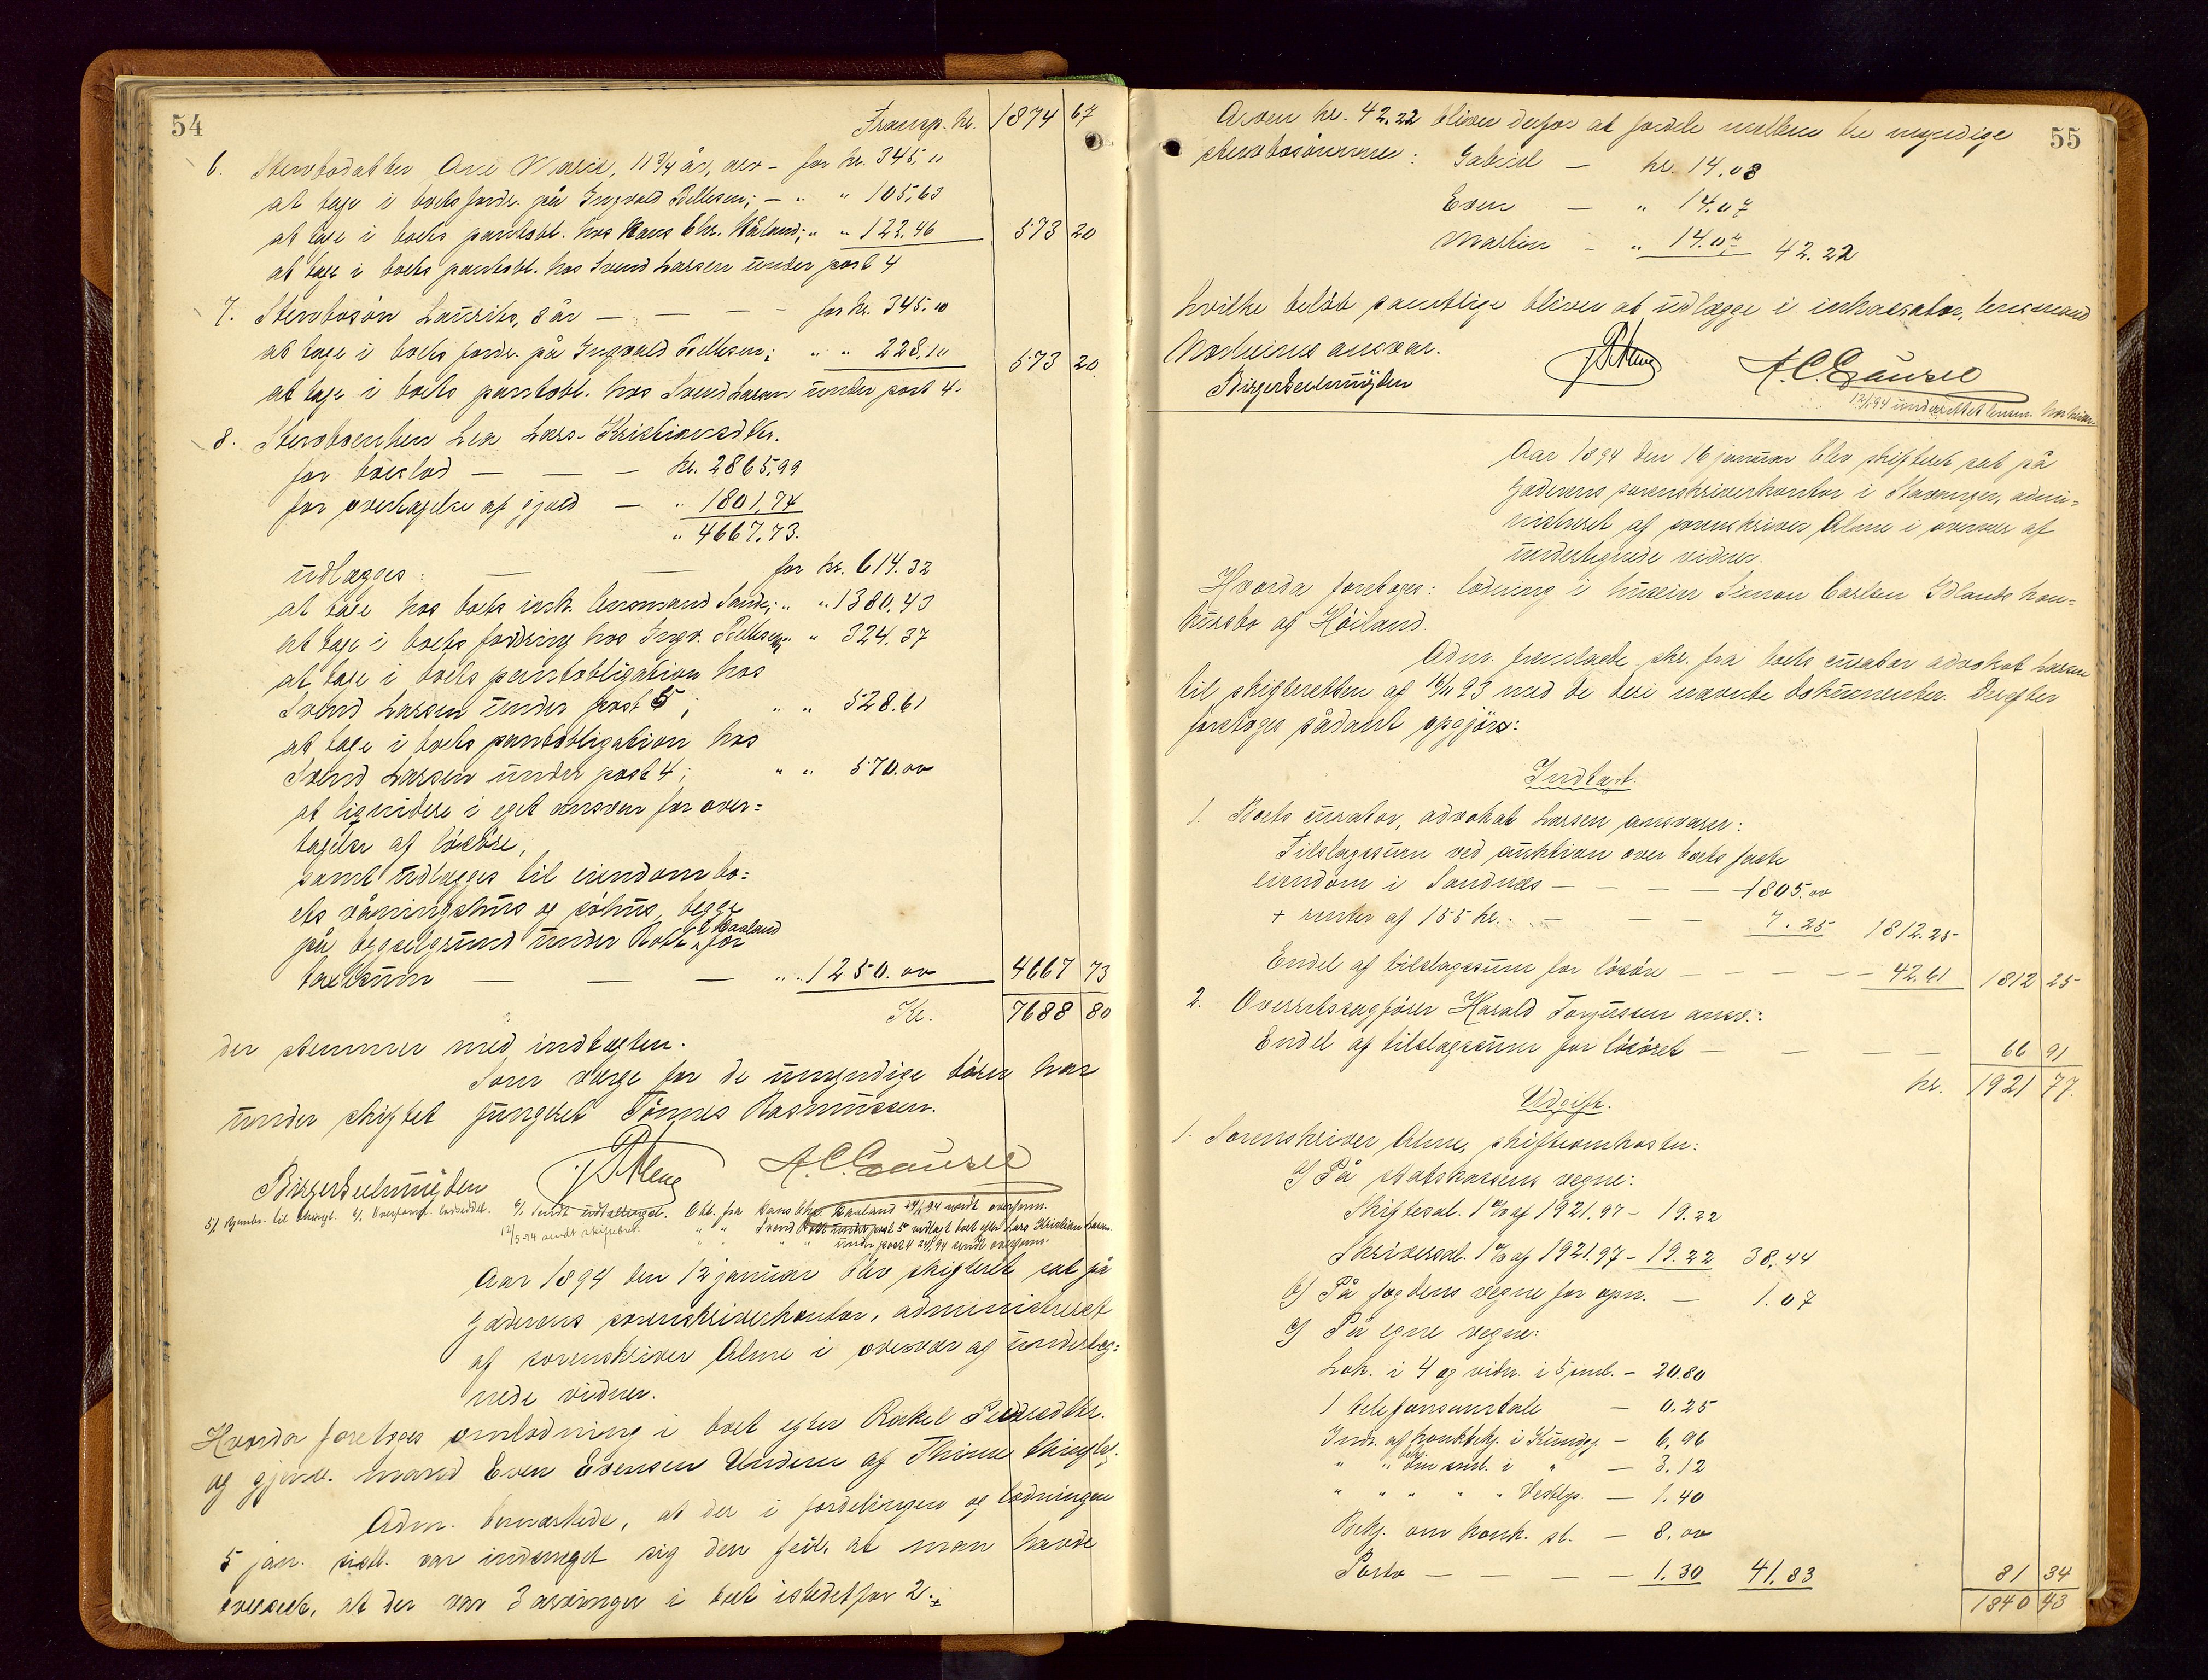 54
Transp. kr. 1874 67
6. Stervbodatter Ane Marie, 11 3/4 år, arv - for kr. 345,11
at tage i boets fordr. på Ingvald Pollesen; - " " 105,63
at tage i boets pantobl. hos Hans Chr. Håland; " " 122.46 573 20
at tage i boets pantobl. hos Svend Larsen under post 4
7. Stervbosön Laurits, 8 år — — — for kr. 345.10
at tage i boets fordr. på Ingvald Pollesen; " " 228.10 573 20
at tage i boets pantobl. hos Svend Larsen under post 4.
8. Stervboenken Lea Lars-Kristiansdtr.
for boeslod — — — kr. 2865,99
for overtagelse af gjæld — " 1801,74
" 4667.73.
udlægges: — — for kr. 614.32
at tage hos boets ink. lensmand Sande; " " 1380.43
at tage i boets fordring hos Ingv. Pollesen; " 324.37
at tage i boets pantobligation hos
Svend Larsen under post 5; " " 528.61
at tage i boets pantobligation hos
Svend Larsen under post 4; " " 570.00
at liquidere i eget ansvar for over=
tagelse af lösöre;
samt udlægges til eiendom bo=
ets våningshus og söhus, begge
på bygselgrund under Rott i Haaland for
taxtsum — — — " 1250.00 4667 73
Kr. 7688 80
der stemmer med indtægten.
Som værge for de umyndige börn har
under skiftet fungeret Tönnes Rasmussen.
Birger Seehmüÿden A.C. Gausel
12/5 94 sendt skifebrev.
under post 4 24/1 94 sendt overform.
Aar 1894 den 12 januar blev skifteret sat på
Jæderens sorenskriverkontor, administreret
af sorenskriver Alme i overvær af underteg=
nede vidner.
Hvorda foretoges omlodning i boet efter Rakel Pedersdtr.
og gjenl. mand Even Evensen Undem af Thime thinglag.
Adm. bemærkede, at der i fordelingen og lodningen
5 jan. sidstl. var indsneget sig den feil, at man havde
overseet, at der var 3 arvinger i boet istedetfor 2.;
55
Arven kr. 42.22 bliver derfor at fordele mellem tre myndige
stervbosönner: Gabriel — kr. 14.08
Even — " 14.07
Martin — " 14.07 42.22
hvilke beløb samtlige bliver at udlægge i inkassator, lensmand
Norheims ansvar.
Birger Seehmüÿden A.C. Gausel
12/1 94 underrettet lensm. Norheim.
Aar 1894 den 16 januar blev skifteret sat på
Jæderens sorenskriverkontor i Stavanger, admi=
nistreret af sorenskriver Alme i overvær af
undertegnede vidner.
Hvorda foretoges: lodning i huseier Simon Carlsen Idlands kon=
kursbo af Höiland.
Adm. fremlagde skr. fra boets curator advokat Larsen
til skifteretten af 16/11 93 med de deri nævnte dokumenter. Derefter
foretoges sådant opgjör:
Indtægt.
1. Boets curator, advokat Larsen ansvarer:
Tilslagssum ved auktion over boets faste
eiendom i Sandnæs — — — — 1805.00
+ renter af 155 kr. — — — 7.25 1812.25
Endel af tilslagssum for lösöre — — — — 42.61 1812 25
2. Overretssagförer Harald Torjussen ansv.:
Endel af tilslagssum for lösöret — — — — 66 91
kr. 1921 77.
Udgift.
1. Sorenskriver Alme, skifteomkoster:
a) På statskassens vegne:
Skiftesal. 1 % af 1921.97 - 19.22
Skriversal. 1 % af 1921.97 - 19.22 38.44
b) På fogdens vegne for opn. — 1.07
c) På egne vegne:
Lok. i 4 og vidn. i 5 saml. - 20.80
1 telefonsamtale — 0.25
Indr. af konkbekj. i Kundg. - 6,96
" " bekj. om saml. i " — 3.12
" " " " " Vestlgs. — 1.40
Bekj. om konk. sl. — 8.00
Porto — — — 1.30 41.83 81 34
1840 43